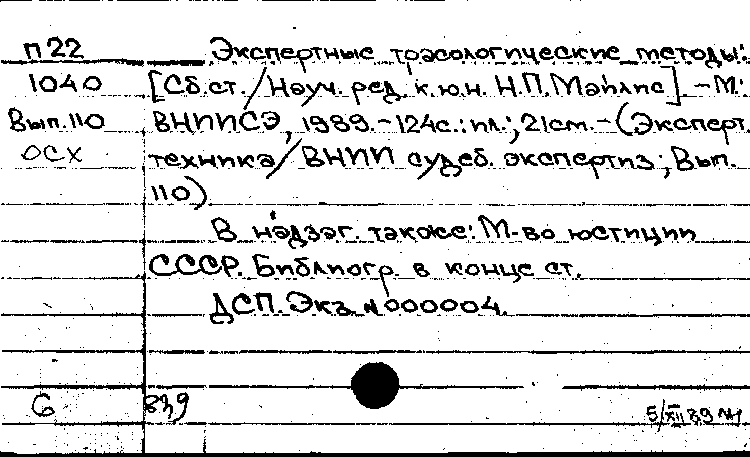 п22 Экспертные трасологические методы:
1040 [Сб.ст./Науч. ред. к.ю.н. Н.П.Майлис]. - М.:
Вып.110 ВНИИСЭ, 1989.-124с.:ил.; 21см.-(Эксперт.
ОСХ техника/ВНИИ судеб. экспертиз; Вып.
110)
В надзаг. также: М-во юстиции
СССР. Библиогр. в конце ст.
ДСП. Экз. № 000004.
6 839 5/XII 89